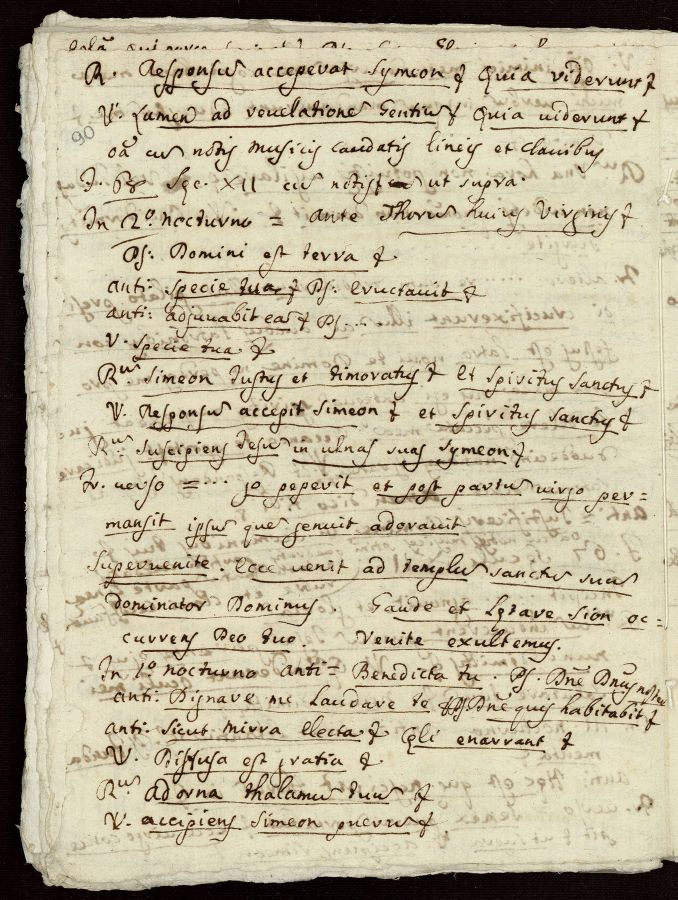 R. Responsu accepevat Symeon & Quia viderunt &
V. Lumen ad reuelatione Gentiu & Quia uiderunt &
90
oa cu notis musicis caudatis lineis et clauibus
f. 68 Sęc. XII cu notis ut supra.
In 2.o nocturno = ante Thoru huius Virginis &
Ps: Domini est terra &.
anti: specie tua & Ps: eructauit &
anti: adjuuabit ea & Ps ...
V. specie tua &
Ru Simeon Justus et timoratus & et Spiritus Sanctus &
V. Responsu accepit Simeon & et Spiritus Sanctus &
Ru: suscipiens Jesu in ulnas suas Symeon &.
Fr. uerso = ... peperit et post partu virgo per=
mansit ipsu que genuit adorauit
Superuenite. Ecce venit ad templu sanctu suu
dominator Dominus. Gaude et Lętare Sion oc=
currens Deo tuo. Venite exultemus.
In 1.o nocturno anti= Benedicta tu. Ps. Dne Dnus noster
anti: Dignare me Laudare te Ps. Dne quis habitabit &
anti: sicut mirra electa & Cęli enarrant &
V. Diffusa est gratia &
Ru adorna thalamu tuu &
V. accipiens Simeon pueru &